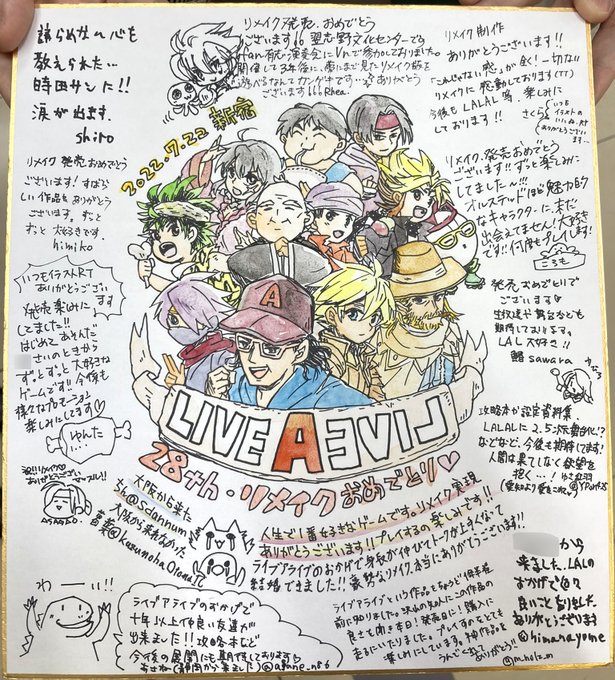 諦めない心を
教えられた…
時田サンに!!
涙が出ます.
shiro
リメイク発売.おめでとう
ございます!! 習志野文化センターでの
fan有志演奏会にVnで参加しておりました。
ありがとう
ございます!!! Rhea.
リメイク制作
ありがとうございます!!
"これじゃない感"が全く!一切ない
リメイクに感動しております(TT)
今後もLALAL等、楽しみに
しております!!
さくら
いつも
イラストの
いいね、RT
ありがとうござい
ます…
2022.7.22 新宿
リメイク 発売おめでとう
ございます!すばらし
い作品をありがとう
ございます。ずっと
ずっと 大好きです.
himiko
リメイク.発売おめでとう
ございます!!ずっと楽しみに
してました~!!!
オルステッドほど魅力的
なキャラクターに.未だ
出会えてません!大好き
です!!何度もプレイします!
ころも
いつもイラストRT
ありがとうござい
ます
発売楽しみに
してました!!
はじめてあそんだ
さいのときから
ずっとずっと大好きな
ゲームです!!今後も
様々なプロモーション
楽しみにしてます♡
発売おめでとうで
ございます
生放送や舞台なども
期待しております。
LAL大好き!!
鰆 sawara
A
LIVE A EVIL
ゆんた
い…
28th・リメイクおめでとう♡
攻略本が設定資料集.
LALALに2.5次元舞台化!?
などなど、今後も期待してます!
人間は果てしなく欲望を
抱く…!
祝!!リメイク♡
ありがとうござい
マッスル!!
ASAGAO.
大阪から来た
@sdannum
大阪から来れなかった
茜葉@kusunohaOtonaJC
人生で1番好きなゲームです。リメイク実現
ありがとうございます!!プレイするの楽しみです!!
ライブアライブのおかげで身長が伸びてトークが上手くなって
結婚できました!!豪勢なリメイク、本当にありがとうございます!!
わーぃ!!
ライブアライブのおかげで
十年以上仲良い友達が
出来ました!!攻略本など
今後の展開にも期待しております!
あさね(静岡から来ました) @asane_n86
ライブアライブという作品をちょうど1年程
前に知りました。
良さを
走るにいたりました。プレイするのをとても
楽しみにしています。神作品を
ありがとう!
@m_hole_m
から
来ました、LALの
おかげで色々
良いことありました
ありがとうございます
@himanayome